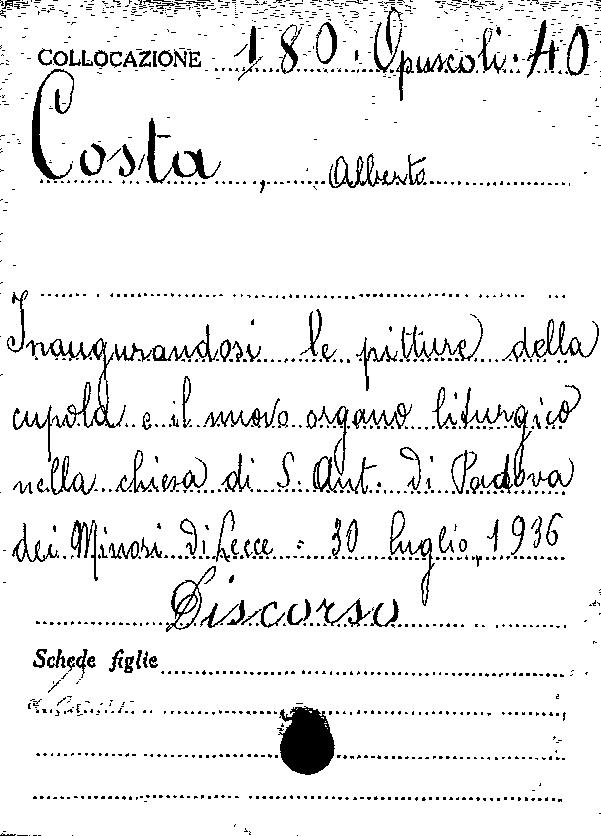 COLLOCAZIONE 180. Opuscoli. 40
Costa, Alberto
Inaugurandosi le pitture della
cupola e il nuovo organo liturgico
nella chiesa di S. Ant. di Padova
dei Minori di Lecce - 30 luglio, 1936
Discorso
Schede figlie